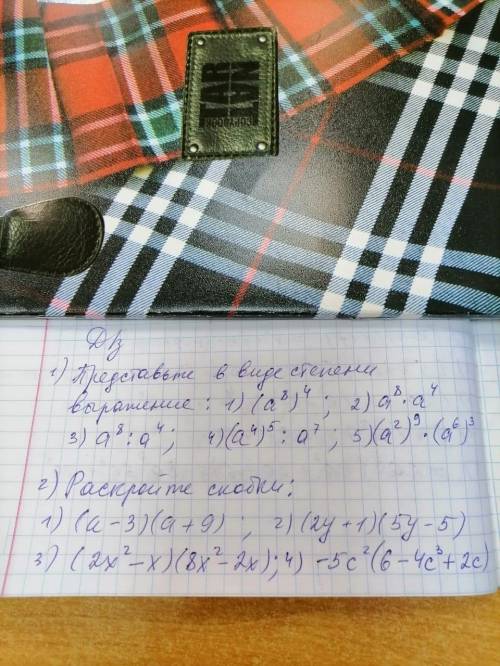 TAR
TAN
COPYBOOK
Д/з
1) Представьте в виде степени
выражение: 1) (a⁸)⁴; 2) a⁸ · a⁴
3) a⁸ : a⁴; 4) (a⁴)⁵ : a⁷; 5) (a²)⁹ · (a⁶)³
2) Раскройте скобки:
1) (a-3)(a+9); 2) (2y+1)(5y-5)
3) (2x²-x)(8x²-2x); 4) -5c²(6-4c³+2c)